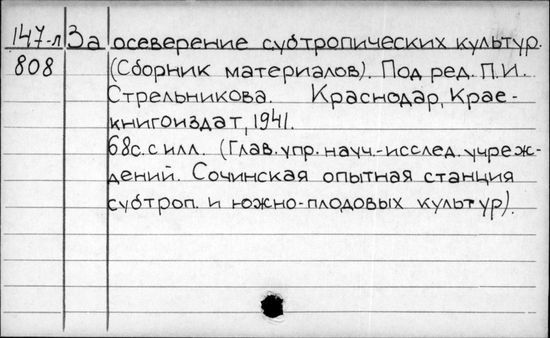 147-л За осеверение субтропических культур.
808 (Сборник материалов). Под ред. П.И.
Стрельникова. Краснодар, Крае-
книгоиздат, 1941.
68с. с илл. (Глав. упр. науч.-исслед. учреж-
дений. Сочинская опытная станция
субтроп. и южно-плодовых культур).